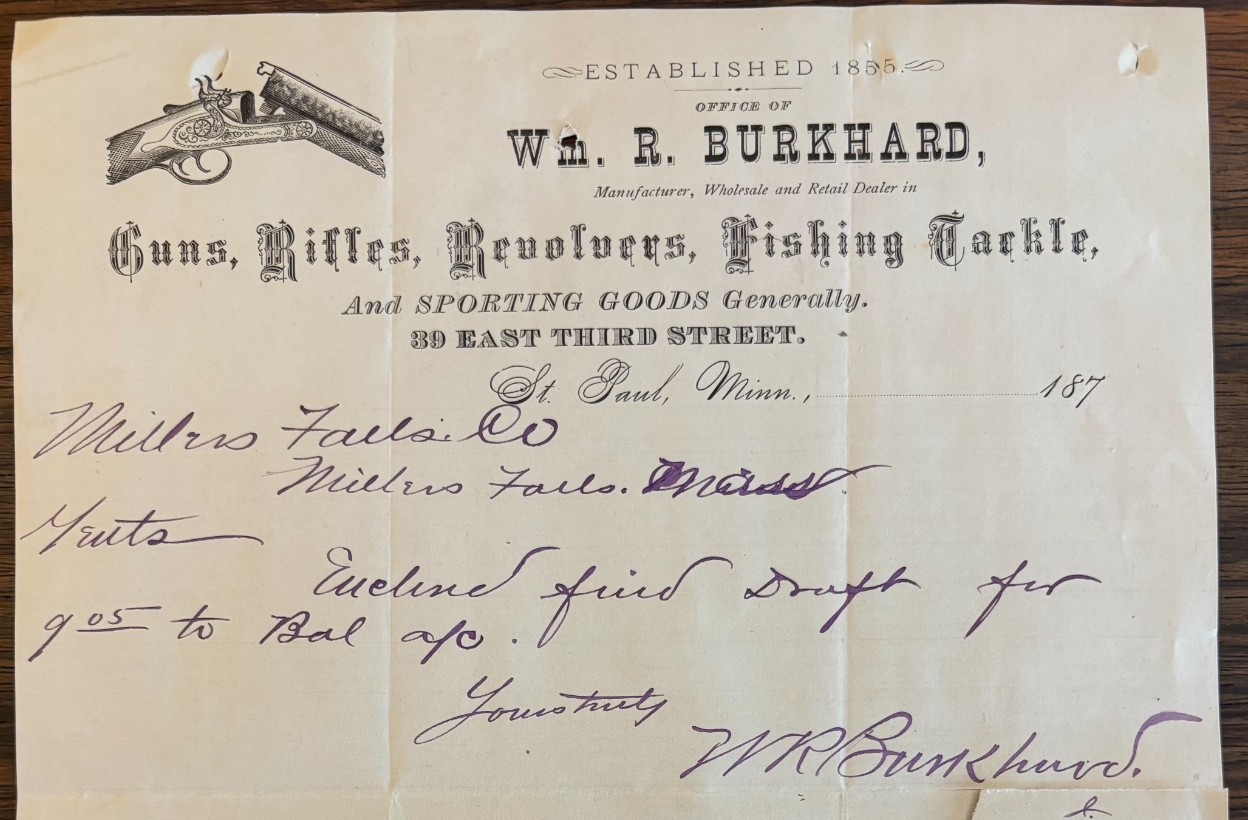 ESTABLISHED 1855.
OFFICE OF
Wm. R. BURKHARD,
Manufacturer, Wholesale and Retail Dealer in
Guns, Rifles, Revolvers, Fishing Tackle,
And SPORTING GOODS Generally.
39 EAST THIRD STREET.
St. Paul, Minn., 187
Millers Falls Co
Millers Falls. Mass
Gents
Enclosed find Draft for
9 05 to Bal a/c.
Yours truly
WR Burkhard.